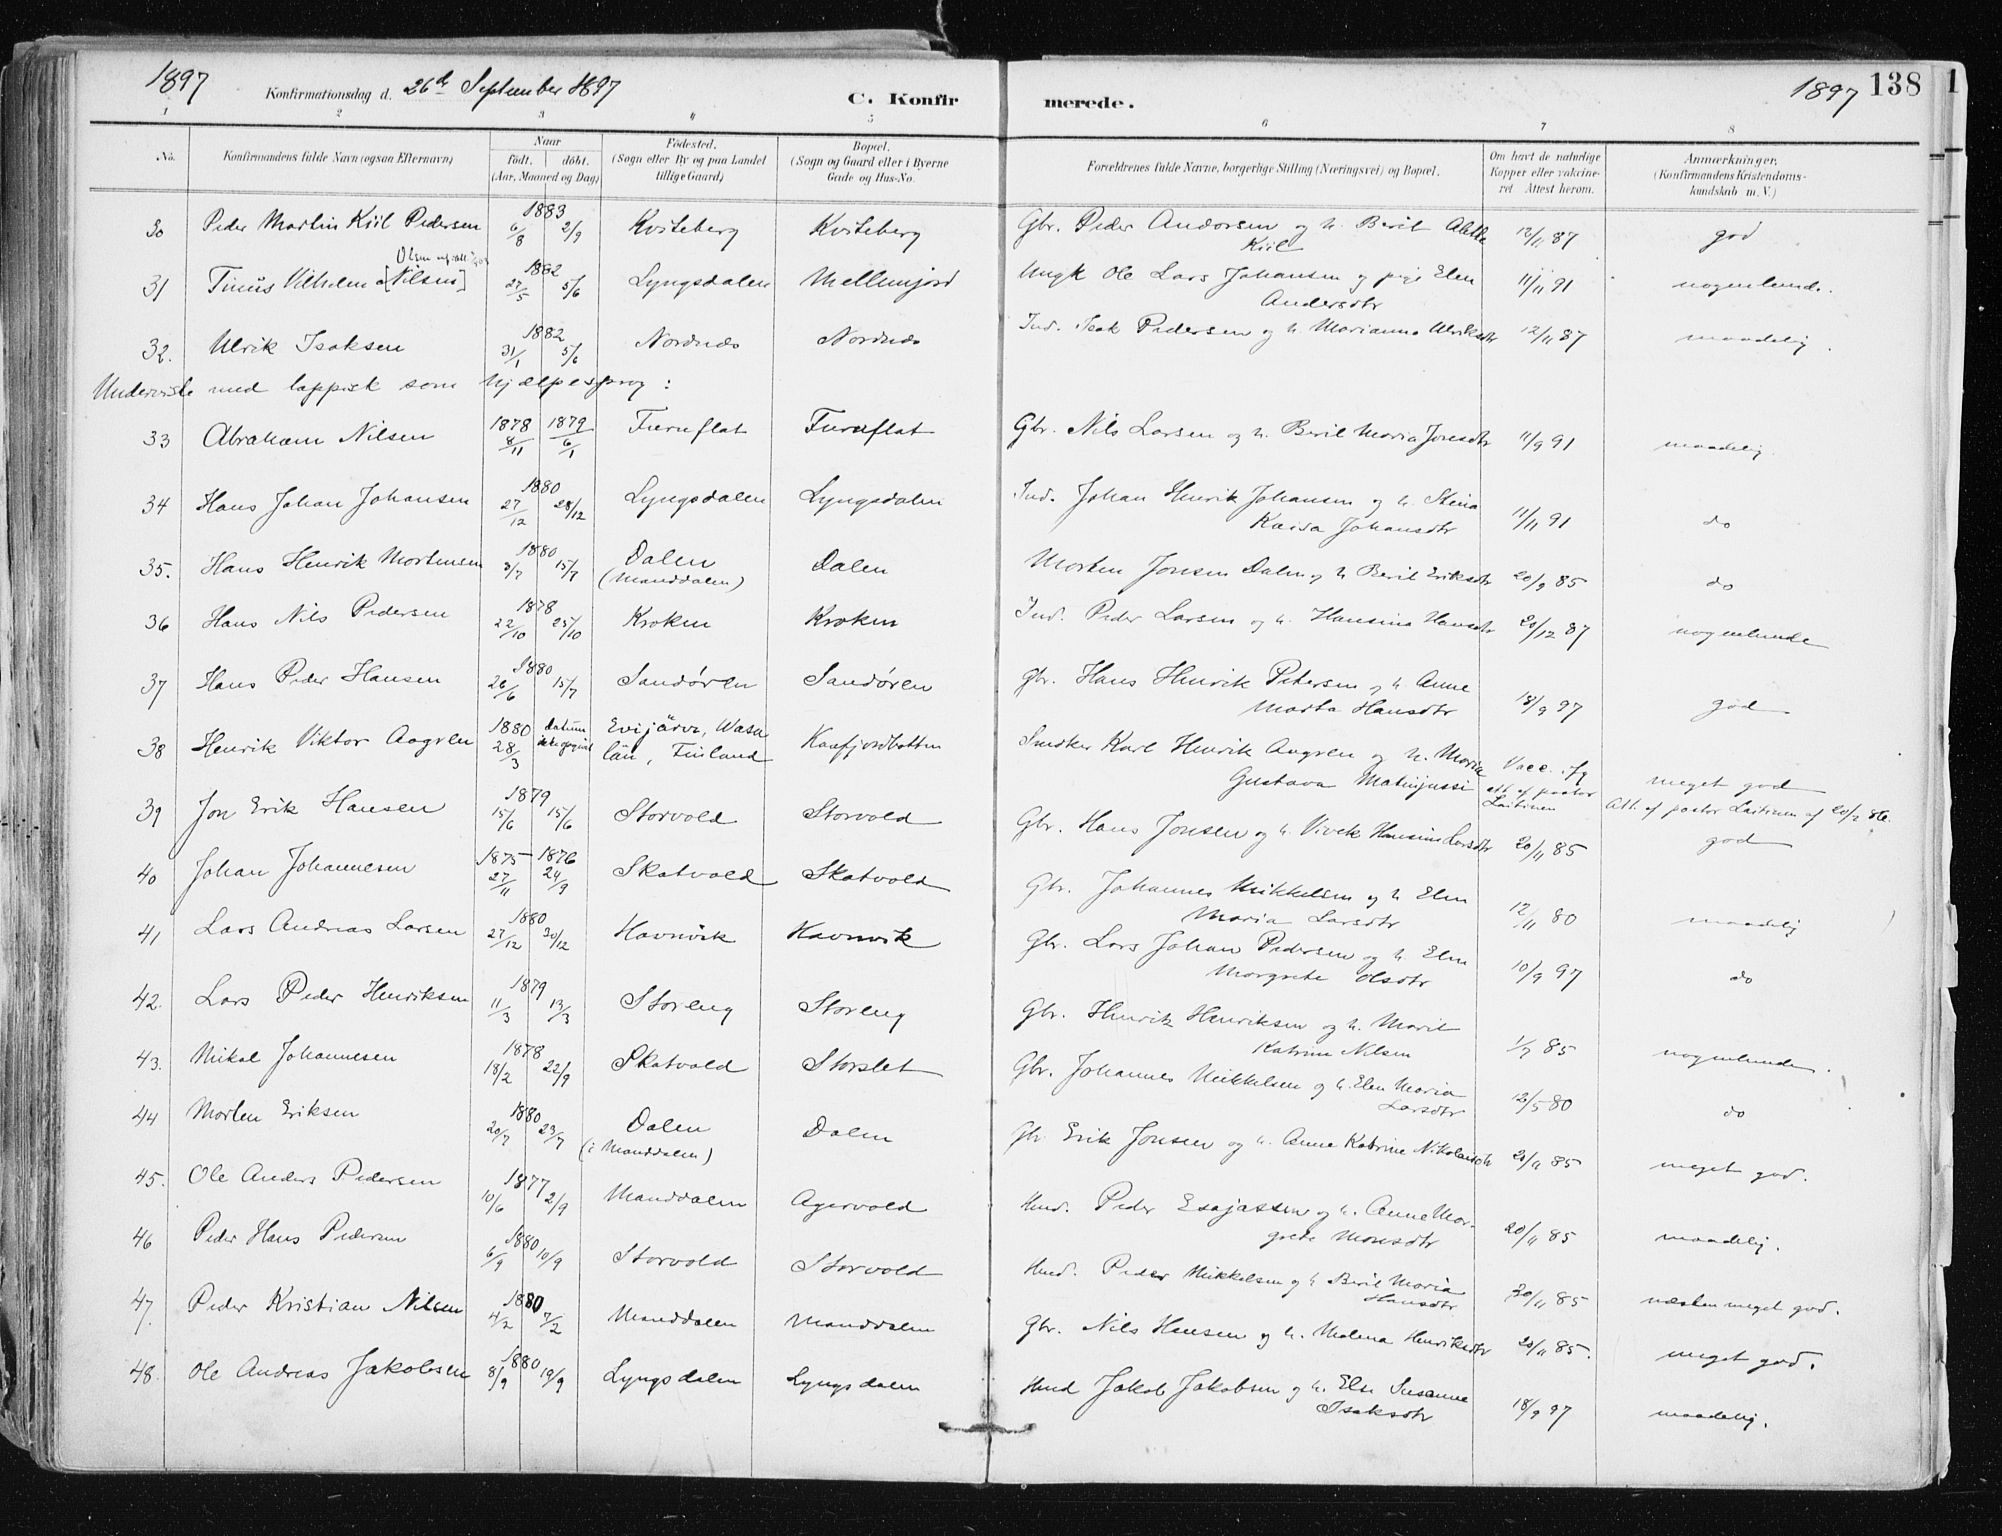 1897 Konfirmationsdag d. 26de September 1897 C. Konfir merede. 1897 138
1 2 3 4 5 6 7 8
No. Konfirmandens fulde Navn (ogsaa Efternavn) Naar født. døbt. (Aar, Maaned og Dag) Fødested. (Sogn eller By og paa Landet tillige Gaard) Bopæl. (Sogn og Gaard eller i Byerne Gade og Hus-No. Forældrenes fulde Navne, borgerlige Stilling (Næringsvei) og Bopæl. Om havt de naturlige Kopper eller vakcineret. Attest herom. Anmærkninger. (Konfirmandens Kristendomskundskab m. V.)
30 Peder Martin Kiil Pedersen 1883 6/8 2/9 Kviteberg Kviteberg Gbr. Peder Andersen og h. Berit Alette Kiil 12/11 87 god
31 Tinus Vilhelm [Nilsen] Olsen 1882 27/5 5/6 Lyngsdalen Mellemjord Ungk Ole Lars Johansen og pige Elen Andersdtr 11/11 91 nogenlunde.
32. Ulrik Isaksen 1882 31/1 5/6 Nordnæs Nordnæs Ind. Isak Pedersen og h. Marianna Ulriksdtr 12/11 87 maadelig.
Underviste med lappisk som hjælpesprog:
33 Abraham Nilsen 1878 8/11 1879 6/1 Furuflat Furuflat Gbr. Nils Larsen og h. Beril Maria Jonsdtr 11/9 91 maadelig.
34 Hans Johan Johansen 1880 27/12 28/12 Lyngsdalen Lyngsdalen Ind. Johan Henrik Johansen og h. Stina Kaisa Johansdtr 11/11 91 do
35. Hans Henrik Mortensen 1880 3/7 15/7 Dalen (Manddalen) Dalen Morten Jonsen Dalen og h Beril Eriksdtr 20/9 85 do
36 Hans Nils Pedersen 1878 22/10 25/10 Kroken Kroken Ind. Peder Larsen og h. Hansina Hansdtr 20/12 87 nogenlunde
37 Hans Peder Hansen 1880 26/6 15/7 Sandøren Sandøren Gbr. Hans Henrik Petersen og h. Anne Marta Hansdtr 18/9 97 god
38 Henrik Viktor Aagren 1880 28/3 datum ikke opgivet Evijärvi, Wasa län, Finland Kaafjordbotten Smed Karl Henrik Aagren og h. Maria Gustava Matinjussi Vacc. ifg att. af pastor Laitinen meget god Att. af pastor Laitinen af 20/2
39 Jon Erik Hansen 1879 15/6 15/6 Storvold Storvold Gbr. Hans Jonsen og h. Vivek Hansine Larsdtr 20/11 85 god
40 Johan Johannesen 1875 27/11 1876 24/9 Skatvold Skatvold Gbr. Johannes Mikkelsen og h Elen Maria Larsdtr 12/11 80 maadelig
41 Lars Andreas Larsen 1880 27/12 30/12 Havnvik Havnvik Gbr. Lars Johan Pedersen og h. Elen Margrete Olsdtr 10/9 97 do
42. Lars Peder Henriksen 1879 11/3 13/3 Storeng Storeng Gbr. Henrik Henriksen og h. Marit Katrine Nilsen 1/7 85 nogenlunde.
43. Mikal Johannesen 1878 18/2 22/9 Skatvold Storslet Gbr. Johannes Mikkelsen og h. Elen Maria Larsdtr 12/5 80 do
44 Morten Eriksen 1880 20/7 23/7 Dalen (i Manddalen) Dalen Gbr Erik Jonsen og h. Anne Katrine Nikolaisdtr 20/11 85 meget god.
45. Ole Anders Pedersen 1877 10/6 2/9 Manddalen Agervold Ind. Peder Esajassen og h. Anne Margrete Monsdtr 20/11 85 maadelig.
46 Peder Hans Pedersen 1880 6/9 10/9 Storvold Storvold Ind. Peder Mikkelsen og h Beril Maria Hansdtr 30/11 85 næsten meget god.
47. Peder Kristian Nilsen 1880 4/2 7/2 Manddalen Manddalen Gbr. Nils Hansen og h. Malena Henriksdtr 20/11 85. meget god.
48. Ole Andreas Jakobsen 1880 8/9 19/9 Lyngsdalen Lyngsdalen Ind Jakob Jakobsen og h. Else Susanne Isaksdtr 18/9 97 maadelig.